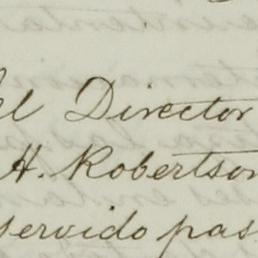 el Director
H. Robertson
servido pas